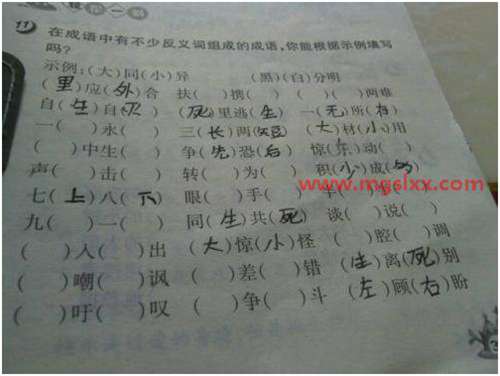 11
在成语中有不少反义词组成的成语,你能根据示例填写
吗?
示例:(大)同(小)异 (黑)(白)分明
(里)应(外)合 扶( )携( ) ( )( )两难
自(生)自(灭) (死)里逃(生) 一(无)所(有)
一( )永( ) 三(长)两(短) (大)材(小)用
( )中生( ) 争(先)恐(后) 惊( )动( )
声( )击( ) 转( )为( ) 积(小)成(多)
www.mgslxx.com
七(上)八(下) 眼( )手( )
九( )一( ) 同(生)共(死) 谈( )说( )
( )入( )出 (大)惊(小)怪 ( )腔( )调
( )嘲( )讽 ( )差( )错 (生)离(死)别
( )吁( )叹 ( )争( )斗 (左)顾(右)盼